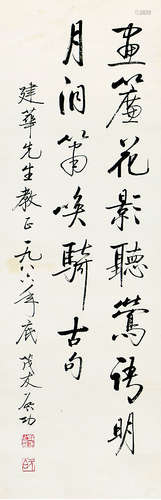 畫簾花影聽鶯語明
月洞簫喚騎 古句
建華先生教正 一九八六年底 啓功